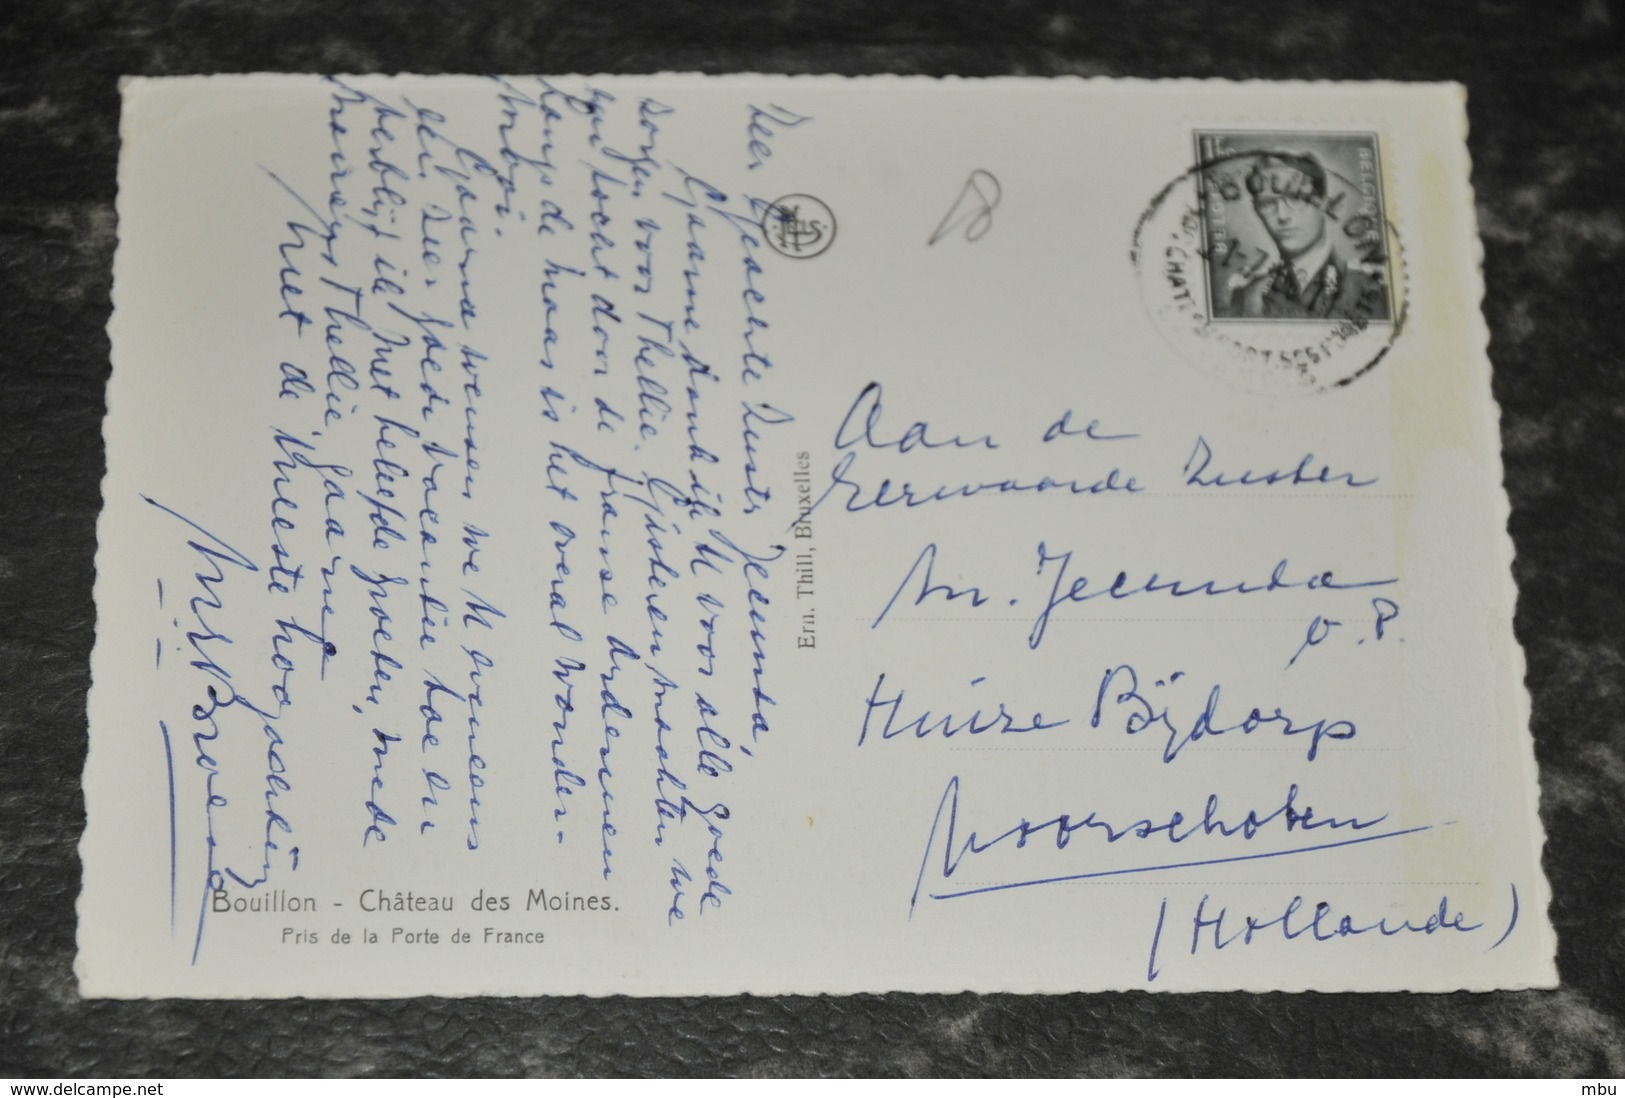 Zeer Geachte Zuster Jecunda,
Gaarne dank ik U voor alle goede
zorgen voor Thellie. Gisteren maakten we
een tocht door de franse Ardennen
Langs de maas is het overal wonder-
mooi.
Gaarne wensen we U eveneens
een zeer goede vacantie toe en
verblijf ik met beleefde groeten, mede
namens Thellie, gaarne
met de meeste hoogachting
Bouillon - Château des Moines.
Pris de la Porte de France
Ern. Thill, Bruxelles
8
BELGIE
BELGIQUE
BOUILLON
Aan de
Eerwaarde Zuster
M. Jecunda
O.P.
Huize Bijdorp
Voorschoten
(Hollande)
delcampe.net
mbu